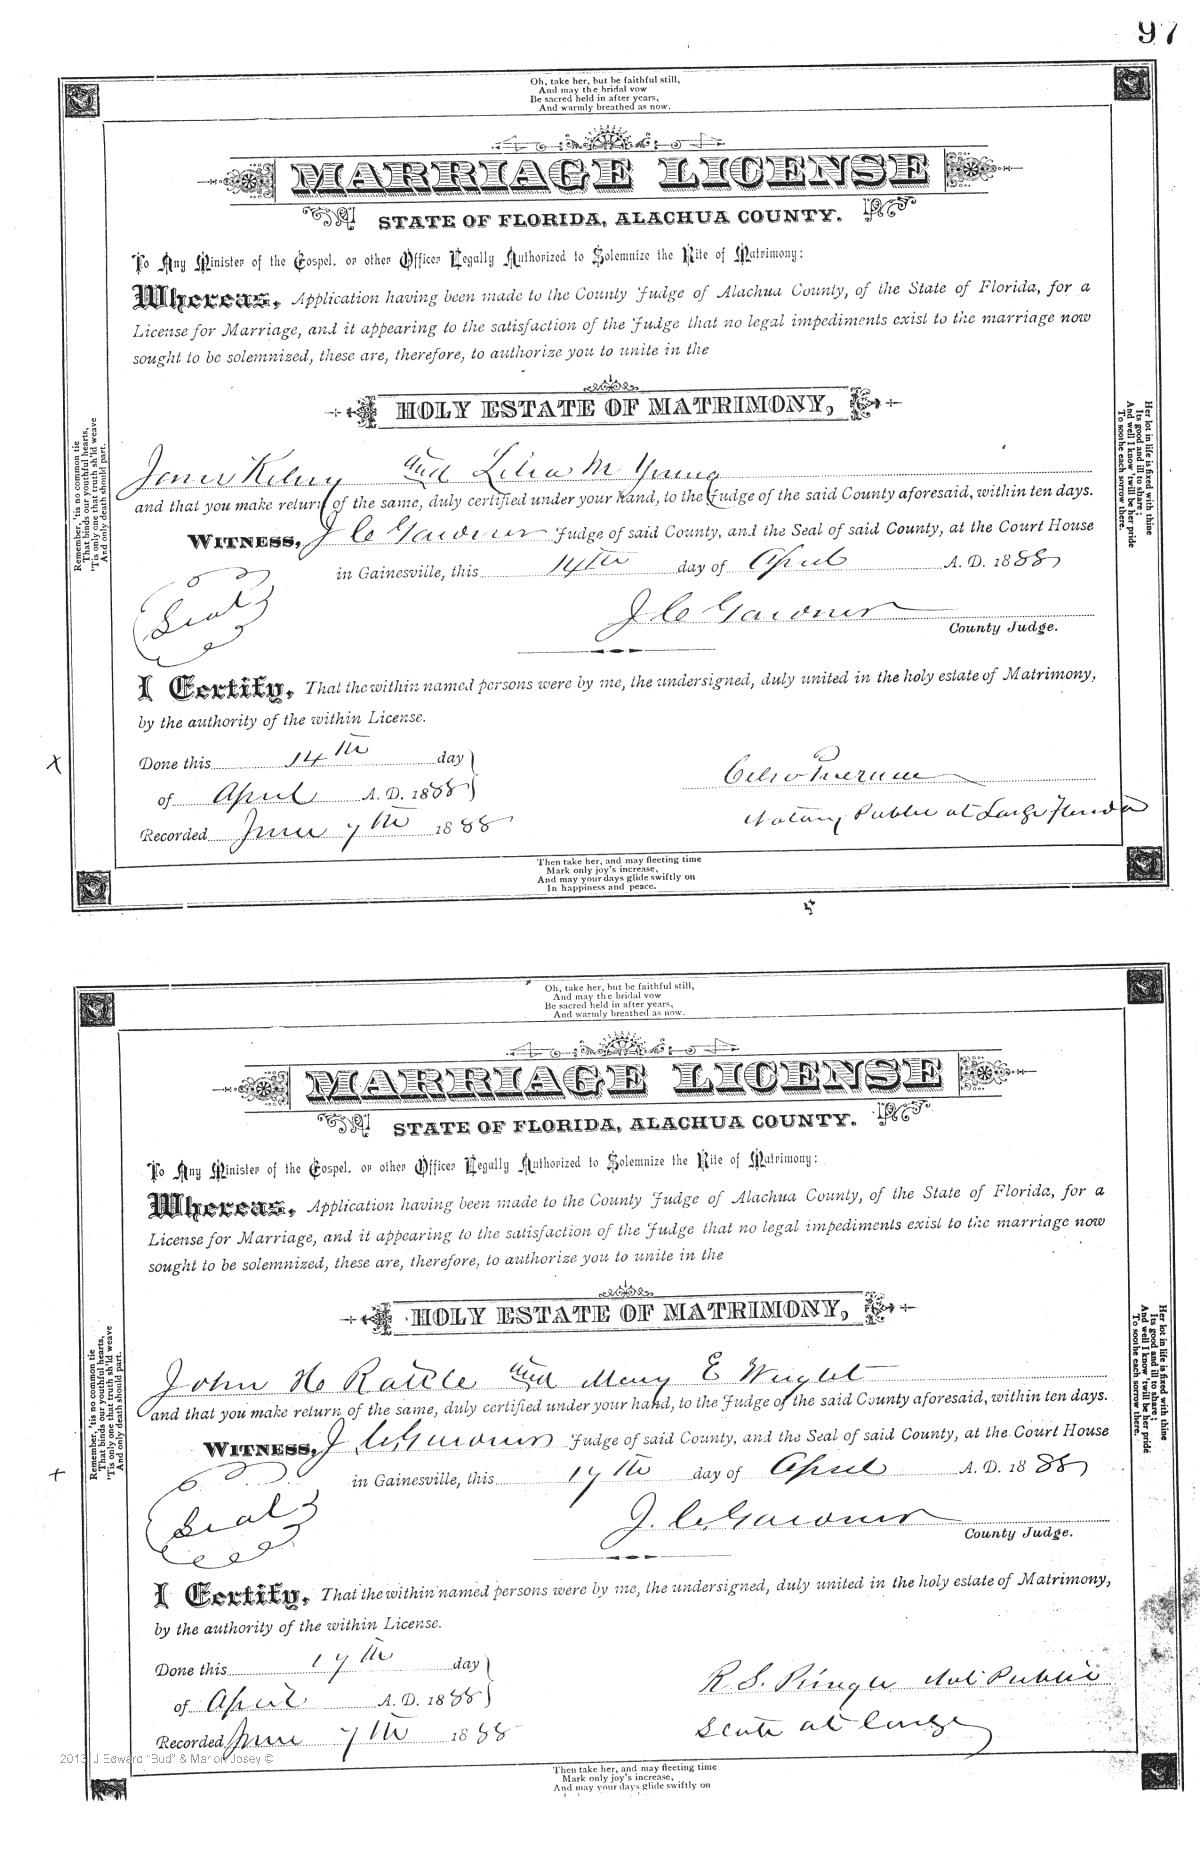 97
Oh, take her, but be faithful still,
And may the bridal vow
Be sacred held in after years,
And warmly breathed as now.
MARRIAGE LICENSE
STATE OF FLORIDA, ALACHUA COUNTY.
To Any Minister of the Gospel, or other Officer Legally Authorized to Solemnize the Rite of Matrimony:
Whereas, Application having been made to the County Judge of Alachua County, of the State of Florida, for a
License for Marriage, and it appearing to the satisfaction of the Judge that no legal impediments exist to the marriage now
sought to be solemnized, these are, therefore, to authorize you to unite in the
HOLY ESTATE OF MATRIMONY,
and M Young
and that you make return of the same, duly certified under your hand, to the Judge of the said County aforesaid, within ten days.
WITNESS, J C Gardner Judge of said County, and the Seal of said County, at the Court House
in Gainesville, this 14th day of April A. D. 1888
Seal
J C Gardner
County Judge.
I Certify, That the within named persons were by me, the undersigned, duly united in the holy estate of Matrimony,
by the authority of the within License.
Done this 14th day
of April A. D. 1888
Recorded June 7th 1888
Notary Public at Large Florida
Then take her, and may fleeting time
Mark only joy's increase,
And may your days glide swiftly on
In happiness and peace.
Remember, 'tis no common tie
That binds our youthful hearts,
'Tis only one that truth sh'ld weave
And only death should part.
Her lot in life is fixed with thine
Its good and ill to share;
And well I know 'twill be her pride
To soothe each sorrow there.
x
Oh, take her, but be faithful still,
And may the bridal vow
Be sacred held in after years,
And warmly breathed as now.
MARRIAGE LICENSE
STATE OF FLORIDA, ALACHUA COUNTY.
To Any Minister of the Gospel, or other Officer Legally Authorized to Solemnize the Rite of Matrimony:
Whereas, Application having been made to the County Judge of Alachua County, of the State of Florida, for a
License for Marriage, and it appearing to the satisfaction of the Judge that no legal impediments exist to the marriage now
sought to be solemnized, these are, therefore, to authorize you to unite in the
HOLY ESTATE OF MATRIMONY,
John H Rattle and Mary E Wright
and that you make return of the same, duly certified under your hand, to the Judge of the said County aforesaid, within ten days.
WITNESS, J C Gardner Judge of said County, and the Seal of said County, at the Court House
in Gainesville, this 17th day of April A. D. 1888
Seal
J. C. Gardner
County Judge.
I Certify, That the within named persons were by me, the undersigned, duly united in the holy estate of Matrimony,
by the authority of the within License.
Done this 17th day
of April A. D. 1888
Recorded June 7th 1888
R. S. Not Public
State at Large
Then take her, and may fleeting time
Mark only joy's increase,
And may your days glide swiftly on
Remember, 'tis no common tie
That binds our youthful hearts,
'Tis only one that truth sh'ld weave
And only death should part.
Her lot in life is fixed with thine
Its good and ill to share;
And well I know 'twill be her pride
To soothe each sorrow there.
2013 J Edward "Bud" & Marion Josey ©